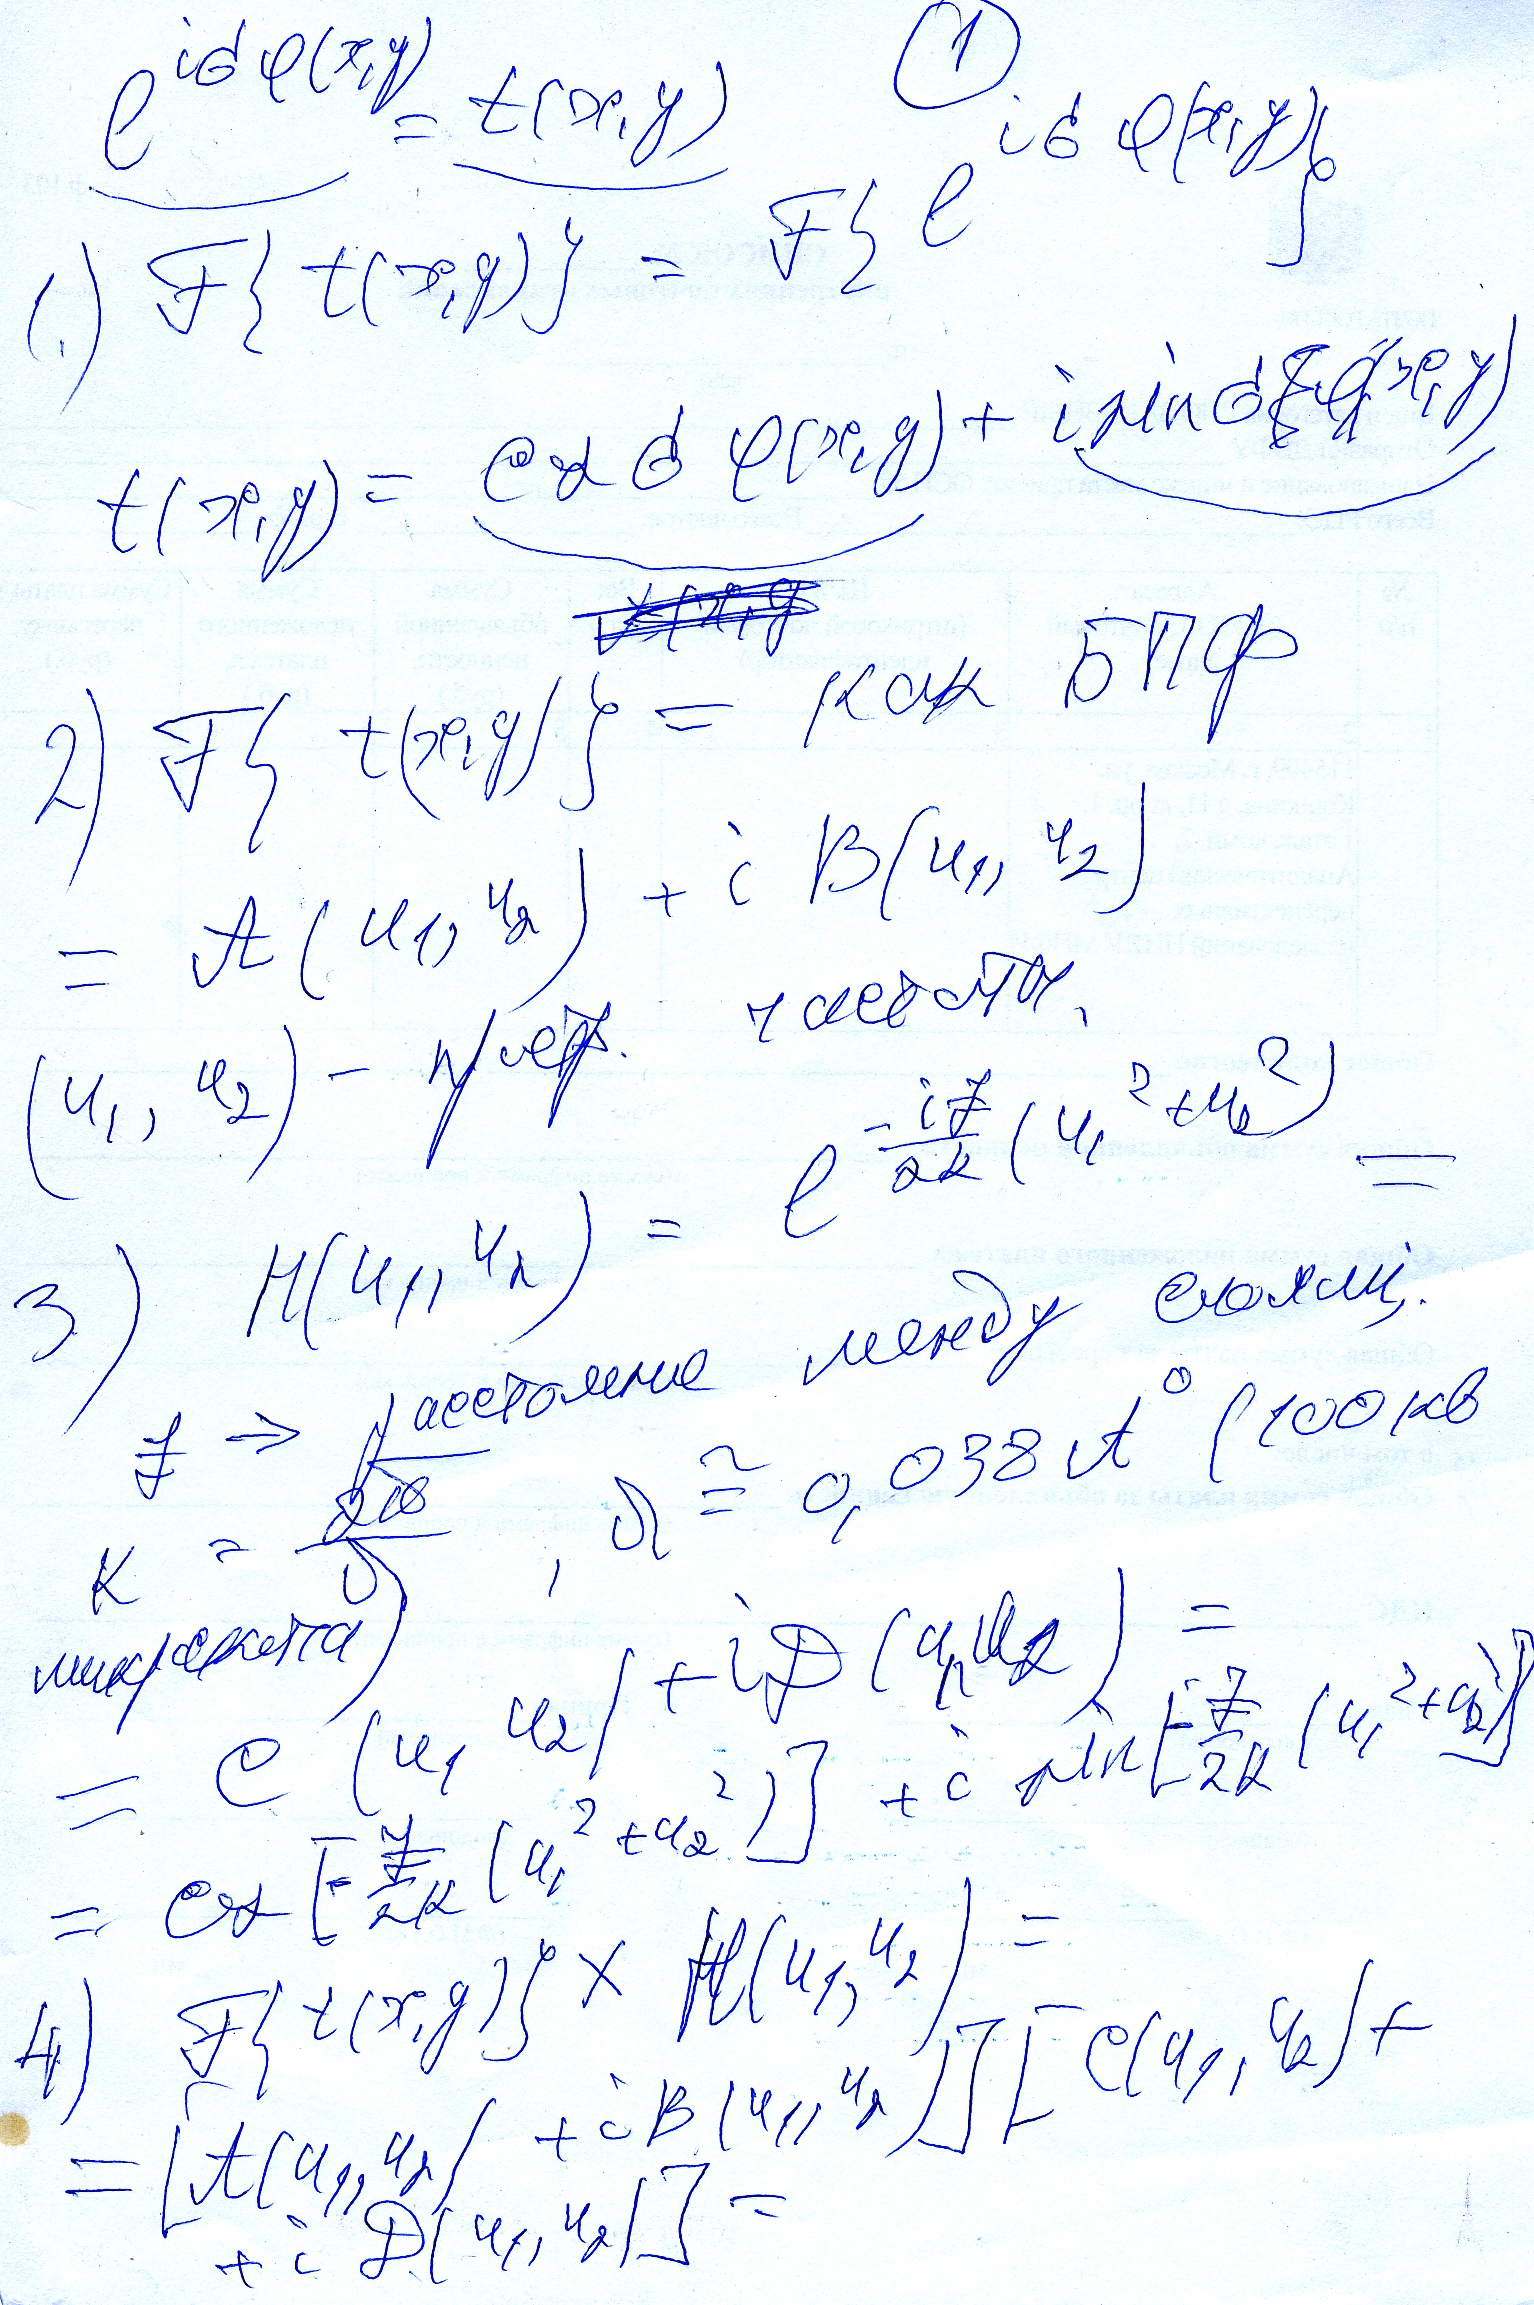 ①
e^{iσφ(x,y)} = t(x,y)
1.) F{t(x,y)} = F{e^{iσφ(x,y)}}
t(x,y) = cos σ φ(x,y) + i sin σ φ(x,y)
2) F{t(x,y)} = как БПФ
= A(u₁, u₂) + i B(u₁, u₂)
(u₁, u₂) - частоты.
3) H(u₁, u₂) = e^{-\frac{iz}{2k}(u₁² + u₂²)} =
z → расстояние между слоями.
k = \frac{2π}{λ}, λ ≅ 0,038 A° (100 кв
микроскопа)
= C(u₁ u₂) + i D(u₁, u₂) =
= cos[-\frac{z}{2k}(u₁² + u₂²)] + i sin[-\frac{z}{2k}(u₁² + u₂²)]
4) F{t(x,y)} × H(u₁, u₂) =
= [A(u₁, u₂) + i B(u₁, u₂)] [C(u₁, u₂) +
+ i D(u₁, u₂)] =